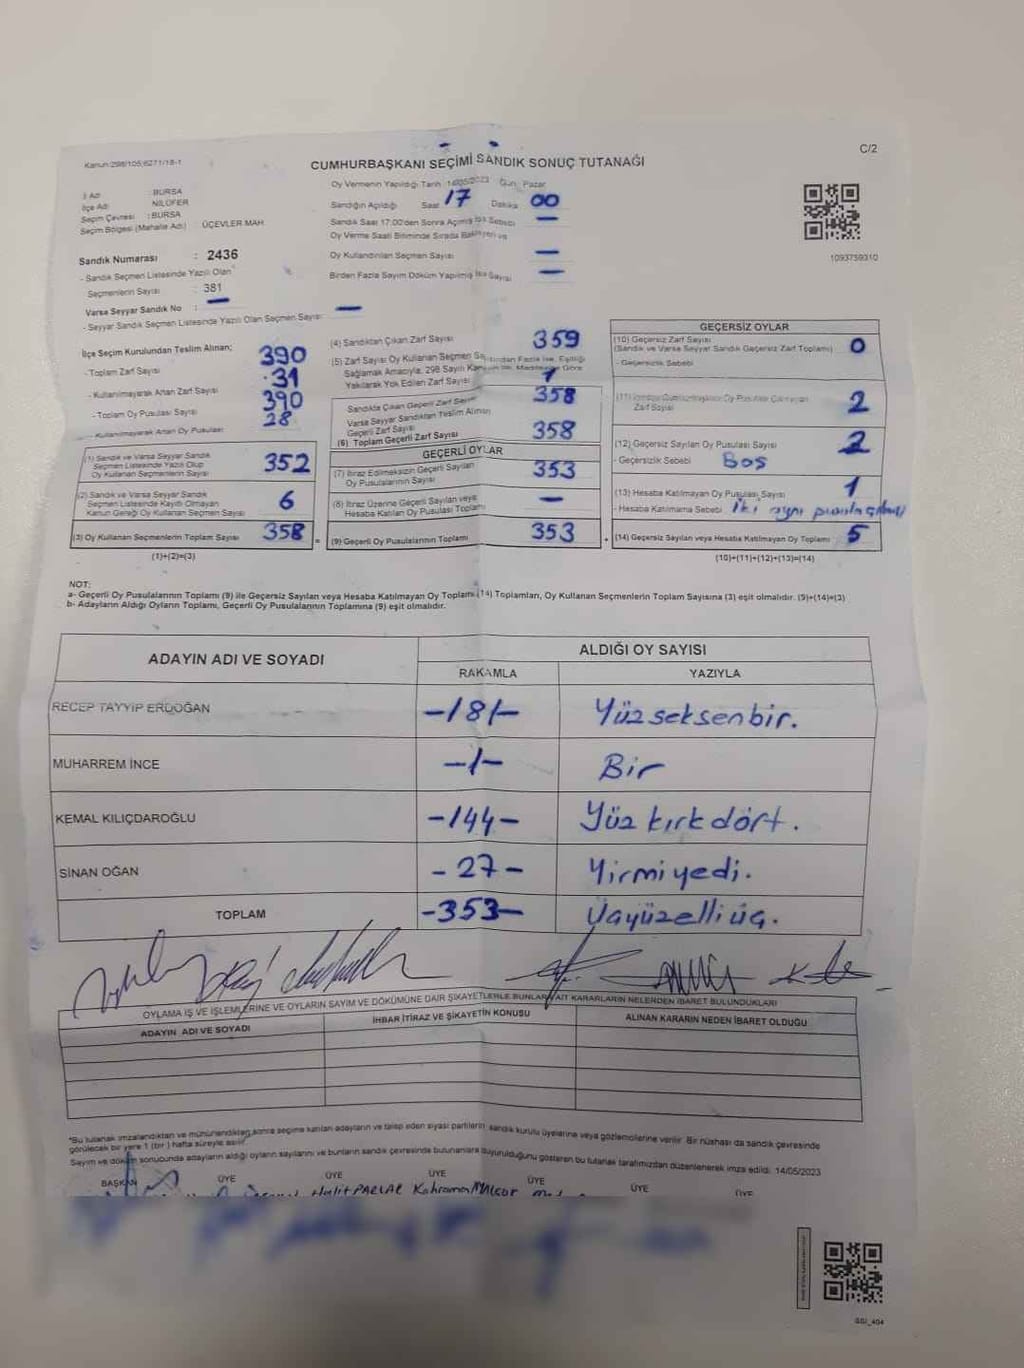 Kanun:298/105;6271/18-1
C/2
CUMHURBAŞKANI SEÇİMİ SANDIK SONUÇ TUTANAĞI
İl Adı : BURSA
İlçe Adı NİLÜFER
Seçim Çevresi : BURSA
Seçim Bölgesi (Mahalle Adı) ÜÇEVLER MAH.
Oy Vermenin Yapıldığı Tarih 14/05/2023 Gün: Pazar
Sandığın Açıldığı Saat 17 Dakika 00
Sandık Saat 17:00'den Sonra Açılmış İse Sebebi —
Oy Verme Saati Bitiminde Sırada Bekleyen ve
Oy Kullandırılan Seçmen Sayısı —
Birden Fazla Sayım Döküm Yapılmış İse Sayısı —
1093759310
Sandık Numarası : 2436
- Sandık Seçmen Listesinde Yazılı Olan
Seçmenlerin Sayısı : 381
Varsa Seyyar Sandık No : —
- Seyyar Sandık Seçmen Listesinde Yazılı Olan Seçmen Sayısı —
İlçe Seçim Kurulundan Teslim Alınan;
- Toplam Zarf Sayısı 390
- Kullanılmayarak Artan Zarf Sayısı 31
- Toplam Oy Pusulası Sayısı 390
- Kullanılmayarak Artan Oy Pusulası 28
(1) Sandık ve Varsa Seyyar Sandık
Seçmen Listesinde Yazılı Olup
Oy Kullanan Seçmenlerin Sayısı 352
(2) Sandık ve Varsa Seyyar Sandık
Seçmen Listesinde Kayıtlı Olmayan
Kanun Gereği Oy Kullanan Seçmen Sayısı 6
(3) Oy Kullanan Seçmenlerin Toplam Sayısı 358
(1)+(2)=(3)
(4) Sandıktan Çıkan Zarf Sayısı 359
(5) Zarf Sayısı Oy Kullanan Seçmen Sayısından Fazla İse, Eşitliği
Sağlamak Amacıyla, 298 Sayılı Kanunun Maddesine Göre
Yakılarak Yok Edilen Zarf Sayısı 1
Sandıkta Çıkan Geçerli Zarf Sayısı 358
Varsa Seyyar Sandıktan Teslim Alınan
Geçerli Zarf Sayısı
(6) Toplam Geçerli Zarf Sayısı 358
GEÇERLİ OYLAR
(7) İtiraz Edilmeksizin Geçerli Sayılan
Oy Pusulalarının Sayısı 353
(8) İtiraz Üzerine Geçerli Sayılan veya
Hesaba Katılan Oy Pusulası Toplamı —
(9) Geçerli Oy Pusulalarının Toplamı 353
GEÇERSİZ OYLAR
(10) Geçersiz Zarf Sayısı
(Sandık ve Varsa Seyyar Sandık Geçersiz Zarf Toplamı) 0
- Geçersizlik Sebebi
(11) İçinden Cumhurbaşkanı Oy Pusulası Çıkmayan
Zarf Sayısı 2
(12) Geçersiz Sayılan Oy Pusulası Sayısı 2
- Geçersizlik Sebebi Boş
(13) Hesaba Katılmayan Oy Pusulası Sayısı 1
- Hesaba Katılmama Sebebi iki ayrı pusula
(14) Geçersiz Sayılan veya Hesaba Katılmayan Oy Toplamı 5
(10)+(11)+(12)+(13)=(14)
NOT:
a- Geçerli Oy Pusulalarının Toplamı (9) ile Geçersiz Sayılan veya Hesaba Katılmayan Oy Toplamı (14) Toplamları, Oy Kullanan Seçmenlerin Toplam Sayısına (3) eşit olmalıdır. (9)+(14)=(3)
b- Adayların Aldığı Oyların Toplamı, Geçerli Oy Pusulalarının Toplamına (9) eşit olmalıdır.
ADAYIN ADI VE SOYADI ALDIĞI OY SAYISI
RAKAMLA YAZIYLA
RECEP TAYYİP ERDOĞAN -181- Yüzseksenbir.
MUHARREM İNCE -1- Bir
KEMAL KILIÇDAROĞLU -144- Yüz kırk dört.
SİNAN OĞAN -27- Yirmi yedi.
TOPLAM -353- Üçyüzelliüç.
OYLAMA İŞ VE İŞLEMLERİNE VE OYLARIN SAYIM VE DÖKÜMÜNE DAİR ŞİKAYETLERLE BUNLARA AİT KARARLARIN NELERDEN İBARET BULUNDUKLARI
ADAYIN ADI VE SOYADI İHBAR İTİRAZ VE ŞİKAYETİN KONUSU ALINAN KARARIN NEDEN İBARET OLDUĞU
*Bu tutanak imzalandıktan ve mühürlendikten sonra seçime katılan adayların ve talep eden siyasi partilerin sandık kurulu üyelerine veya gözlemcilerine verilir. Bir nüshası da sandık çevresinde
görülecek bir yere 1 (bir) hafta süreyle asılır.
Sayım ve döküm sonucunda adayların aldığı oyların sayılarını ve bunların sandık çevresinde bulunanlara duyurulduğunu gösteren bu tutanak tarafımızdan düzenlenerek imza edildi. 14/05/2023
BAŞKAN ÜYE ÜYE ÜYE ÜYE ÜYE ÜYE
Halit PARLAR Kahraman